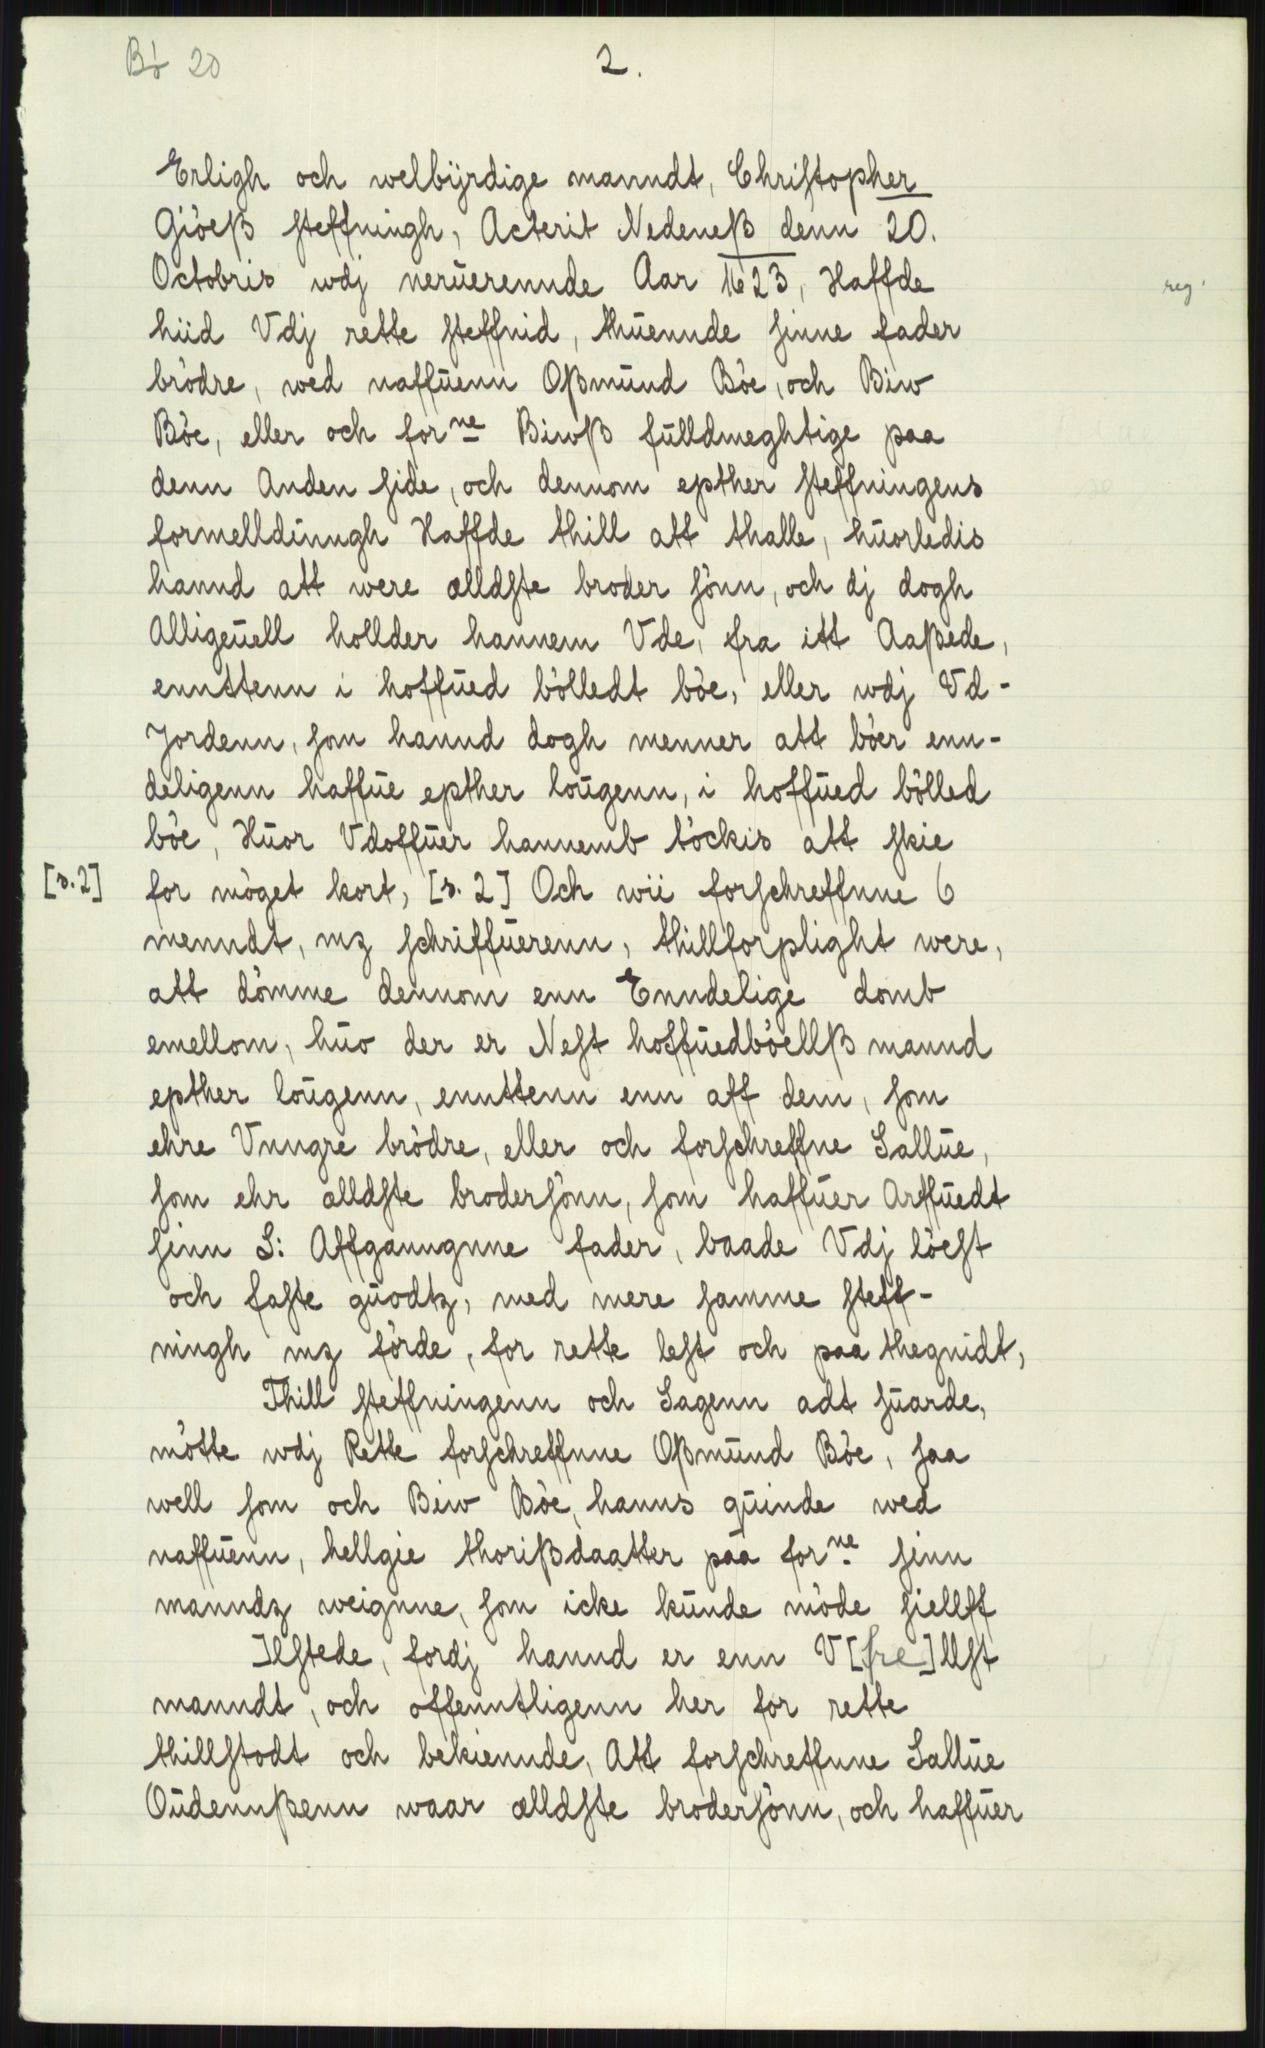 Bö 20
2.
Erligh och welbÿrdige manndt, Christopher
Giöeß steffningh, Acterit Nedeneß denn 20.
Octobris wdj neruerennde Aar 1623, Haffde
reg.
hiid Vdj rette steffnid, thuennde sinne fader
brödre, wed naffuenn Oßmund Böe, och Biw
Böe, eller och forne Biwß fulldmeghtige paa
denn Anden side, och dennom epther steffningens
formelldinngh Haffde thill att thalle, huorledis
hannd att were ælldste broder sönn, och dj dogh
Alligeuell hollder hannem Vde, fra itt Aaßede,
ennttenn i hoffued bölledt böe, eller wdj Vd-
Jordenn, som hannd dogh menner att böer enn-
deligenn haffue epther lougenn, i hoffued bölled
böe, Huor Vdoffuer hannemb töckis att skie
[s. 2] for möget kort, [s. 2] Och wii forschreffnne 6
menndt, mz schriffuerenn, thillforplight were,
att dömme dennom enn Enndelige domb
emellom, huo der er Nest hoffuedböellß mannd
epther lougenn, ennttenn enn aff dem, som
ehre Vnngre brödre, eller och forschreffne Sallue,
som ehr alldste brodersönn, som haffuer Arffuedt
sinn S: Affganngnne fader, baade Vdj löest
och faste guodtz, med mere samme steff-
ningh mz förde, for rette lest och paa thegnidt,
Thill steffningenn och Sagenn adt suarde,
mötte wdj Rette forschreffnne Oßmund Böe, saa
well som och Biw Böe, hanns quinde wed
naffuenn, hellgie thorißdaatter paa forne sinn
manndz weignne, som icke kunde möde siellff
Ilstede, fordj hannd er enn V[fre]llst
manndt, och offenntligenn her for rette
thillstodt och bekiennde, Att forschreffnne Sallue
Oudennßenn waar ælldste brodersönn, och haffuer